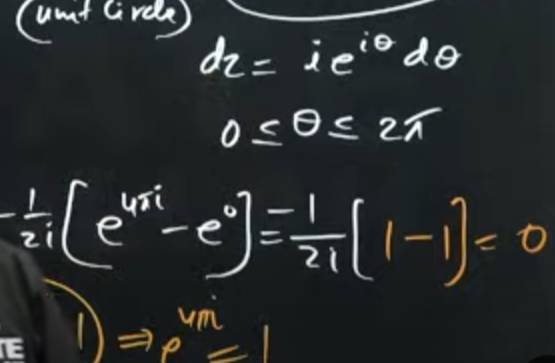 (unit Circle)
dz = ie^{iθ} dθ
0 ≤ θ ≤ 2π
-1/2i [e^{4πi} - e^0] = -1/2i [1-1] = 0
1) ⇒ e^{4πi} = 1
TE